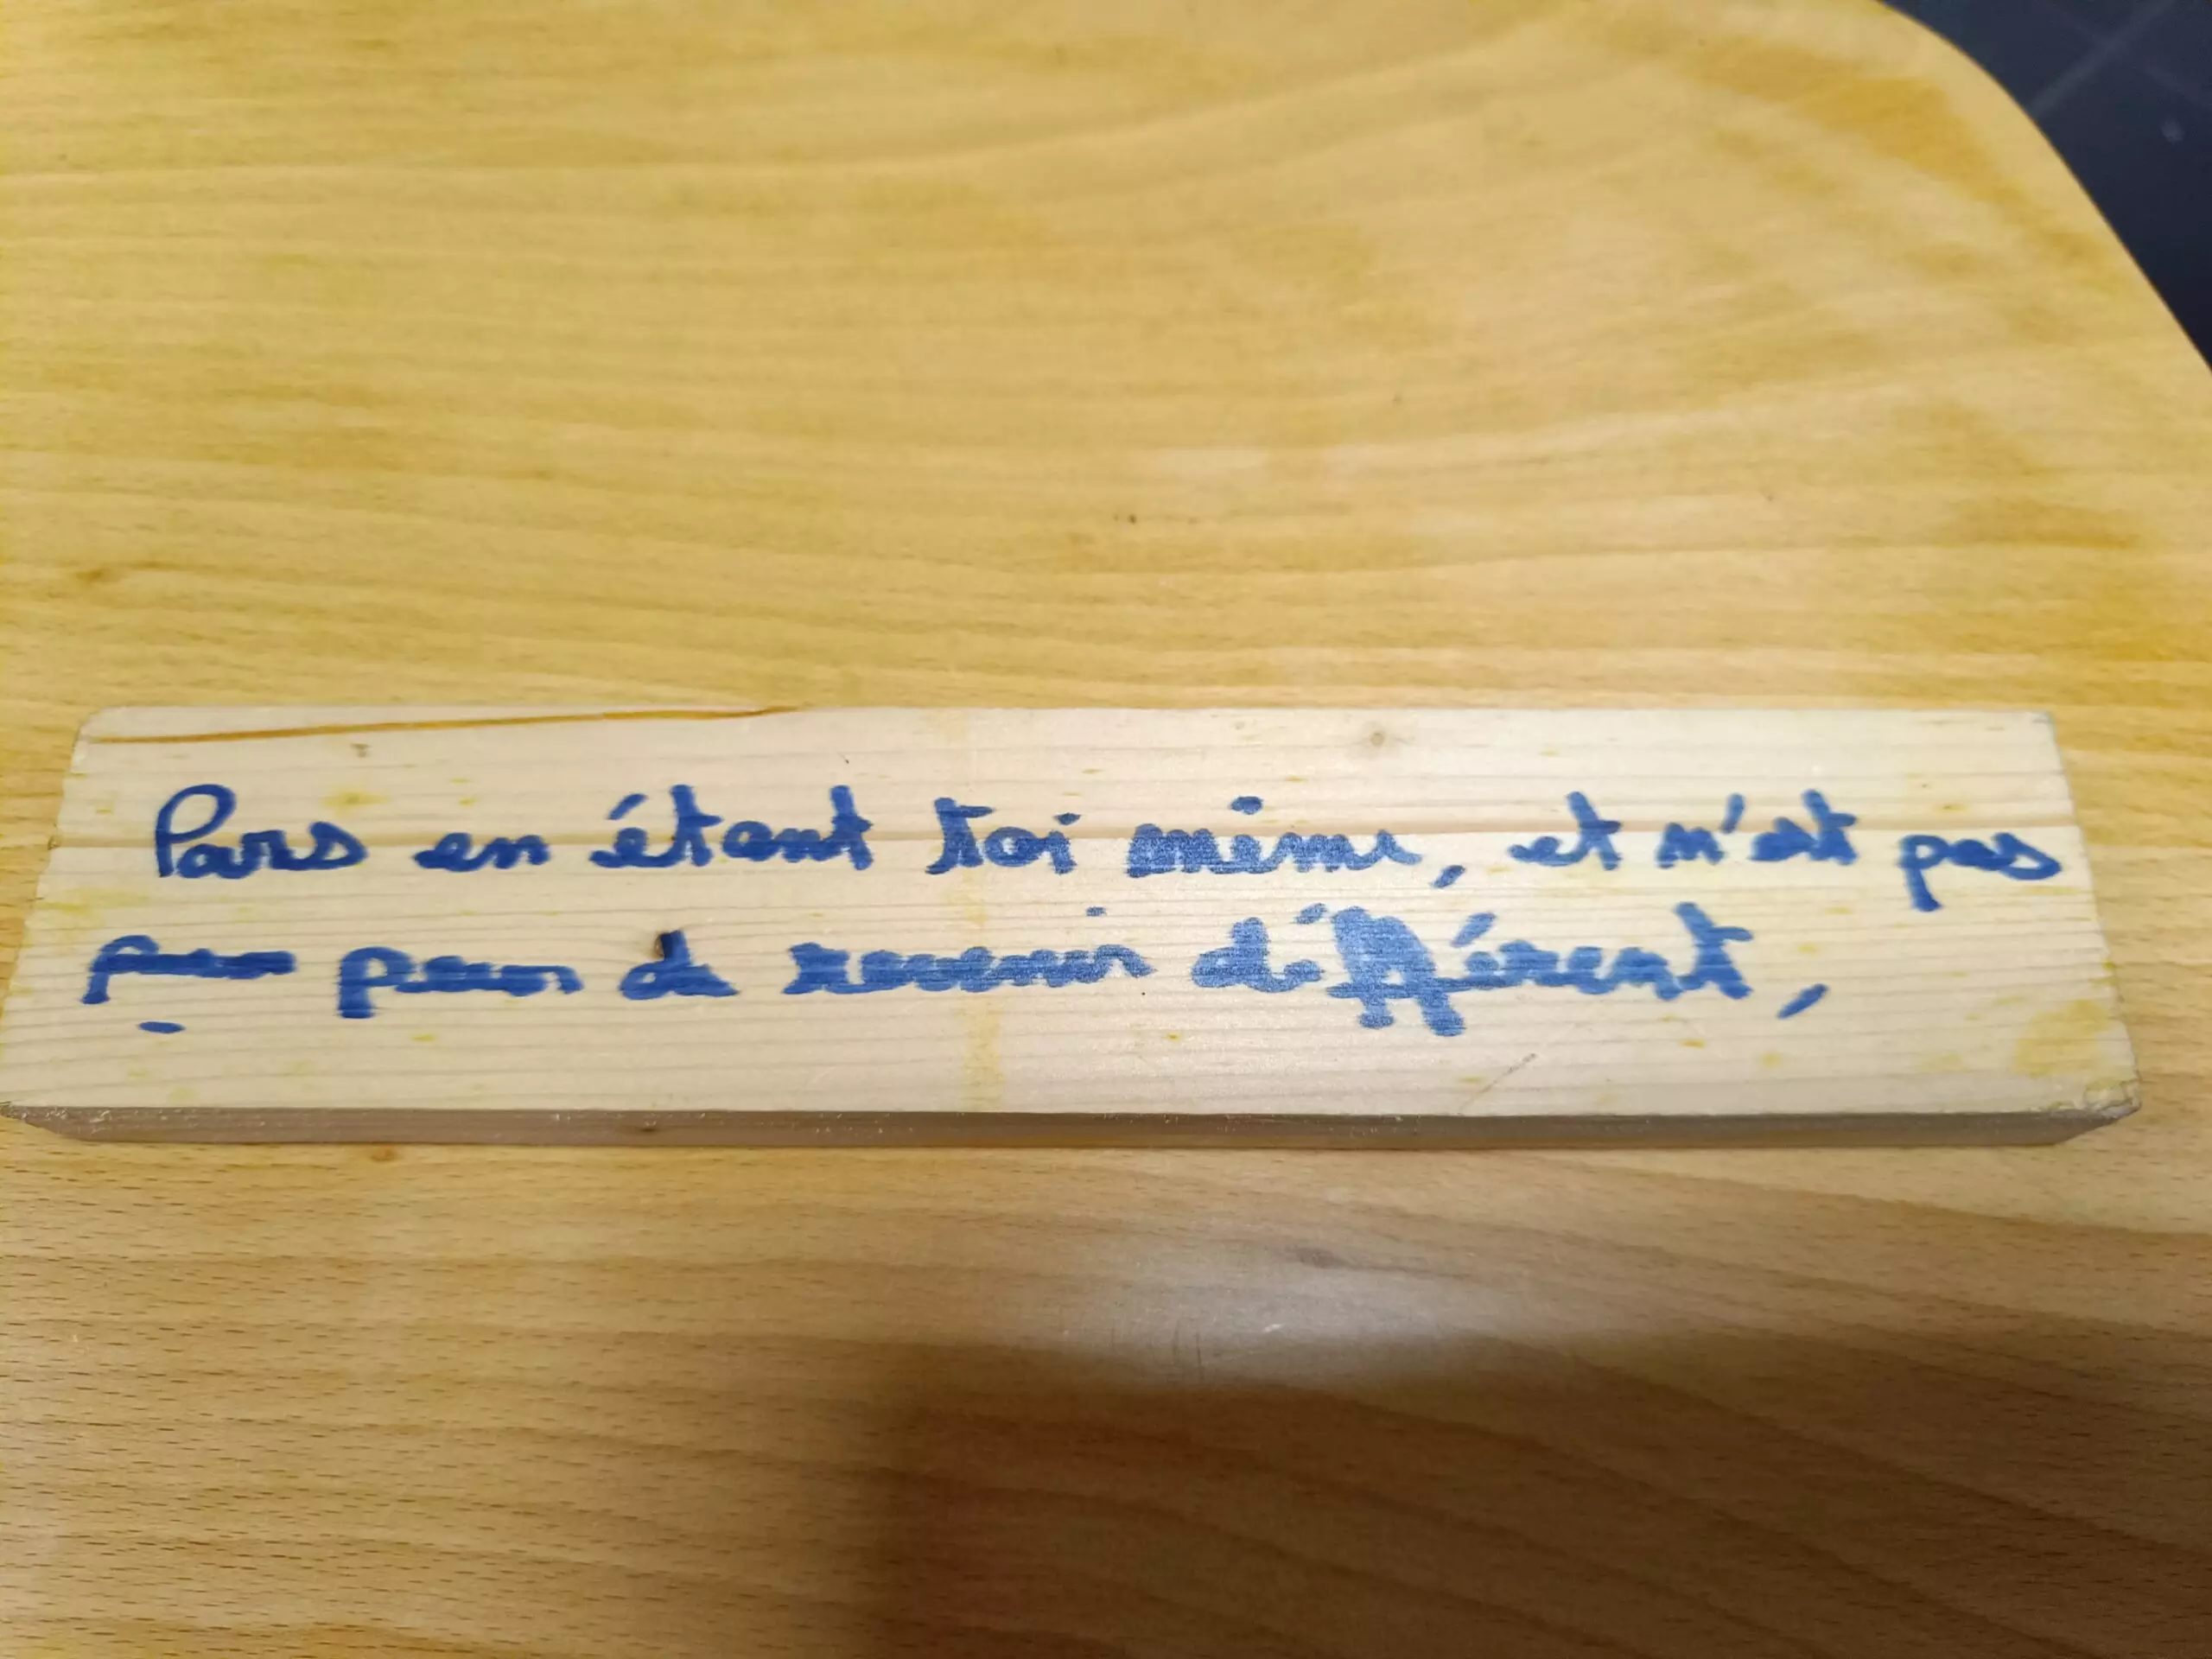 Pars en étant toi même, et n'est pas
peur de revenir différent,